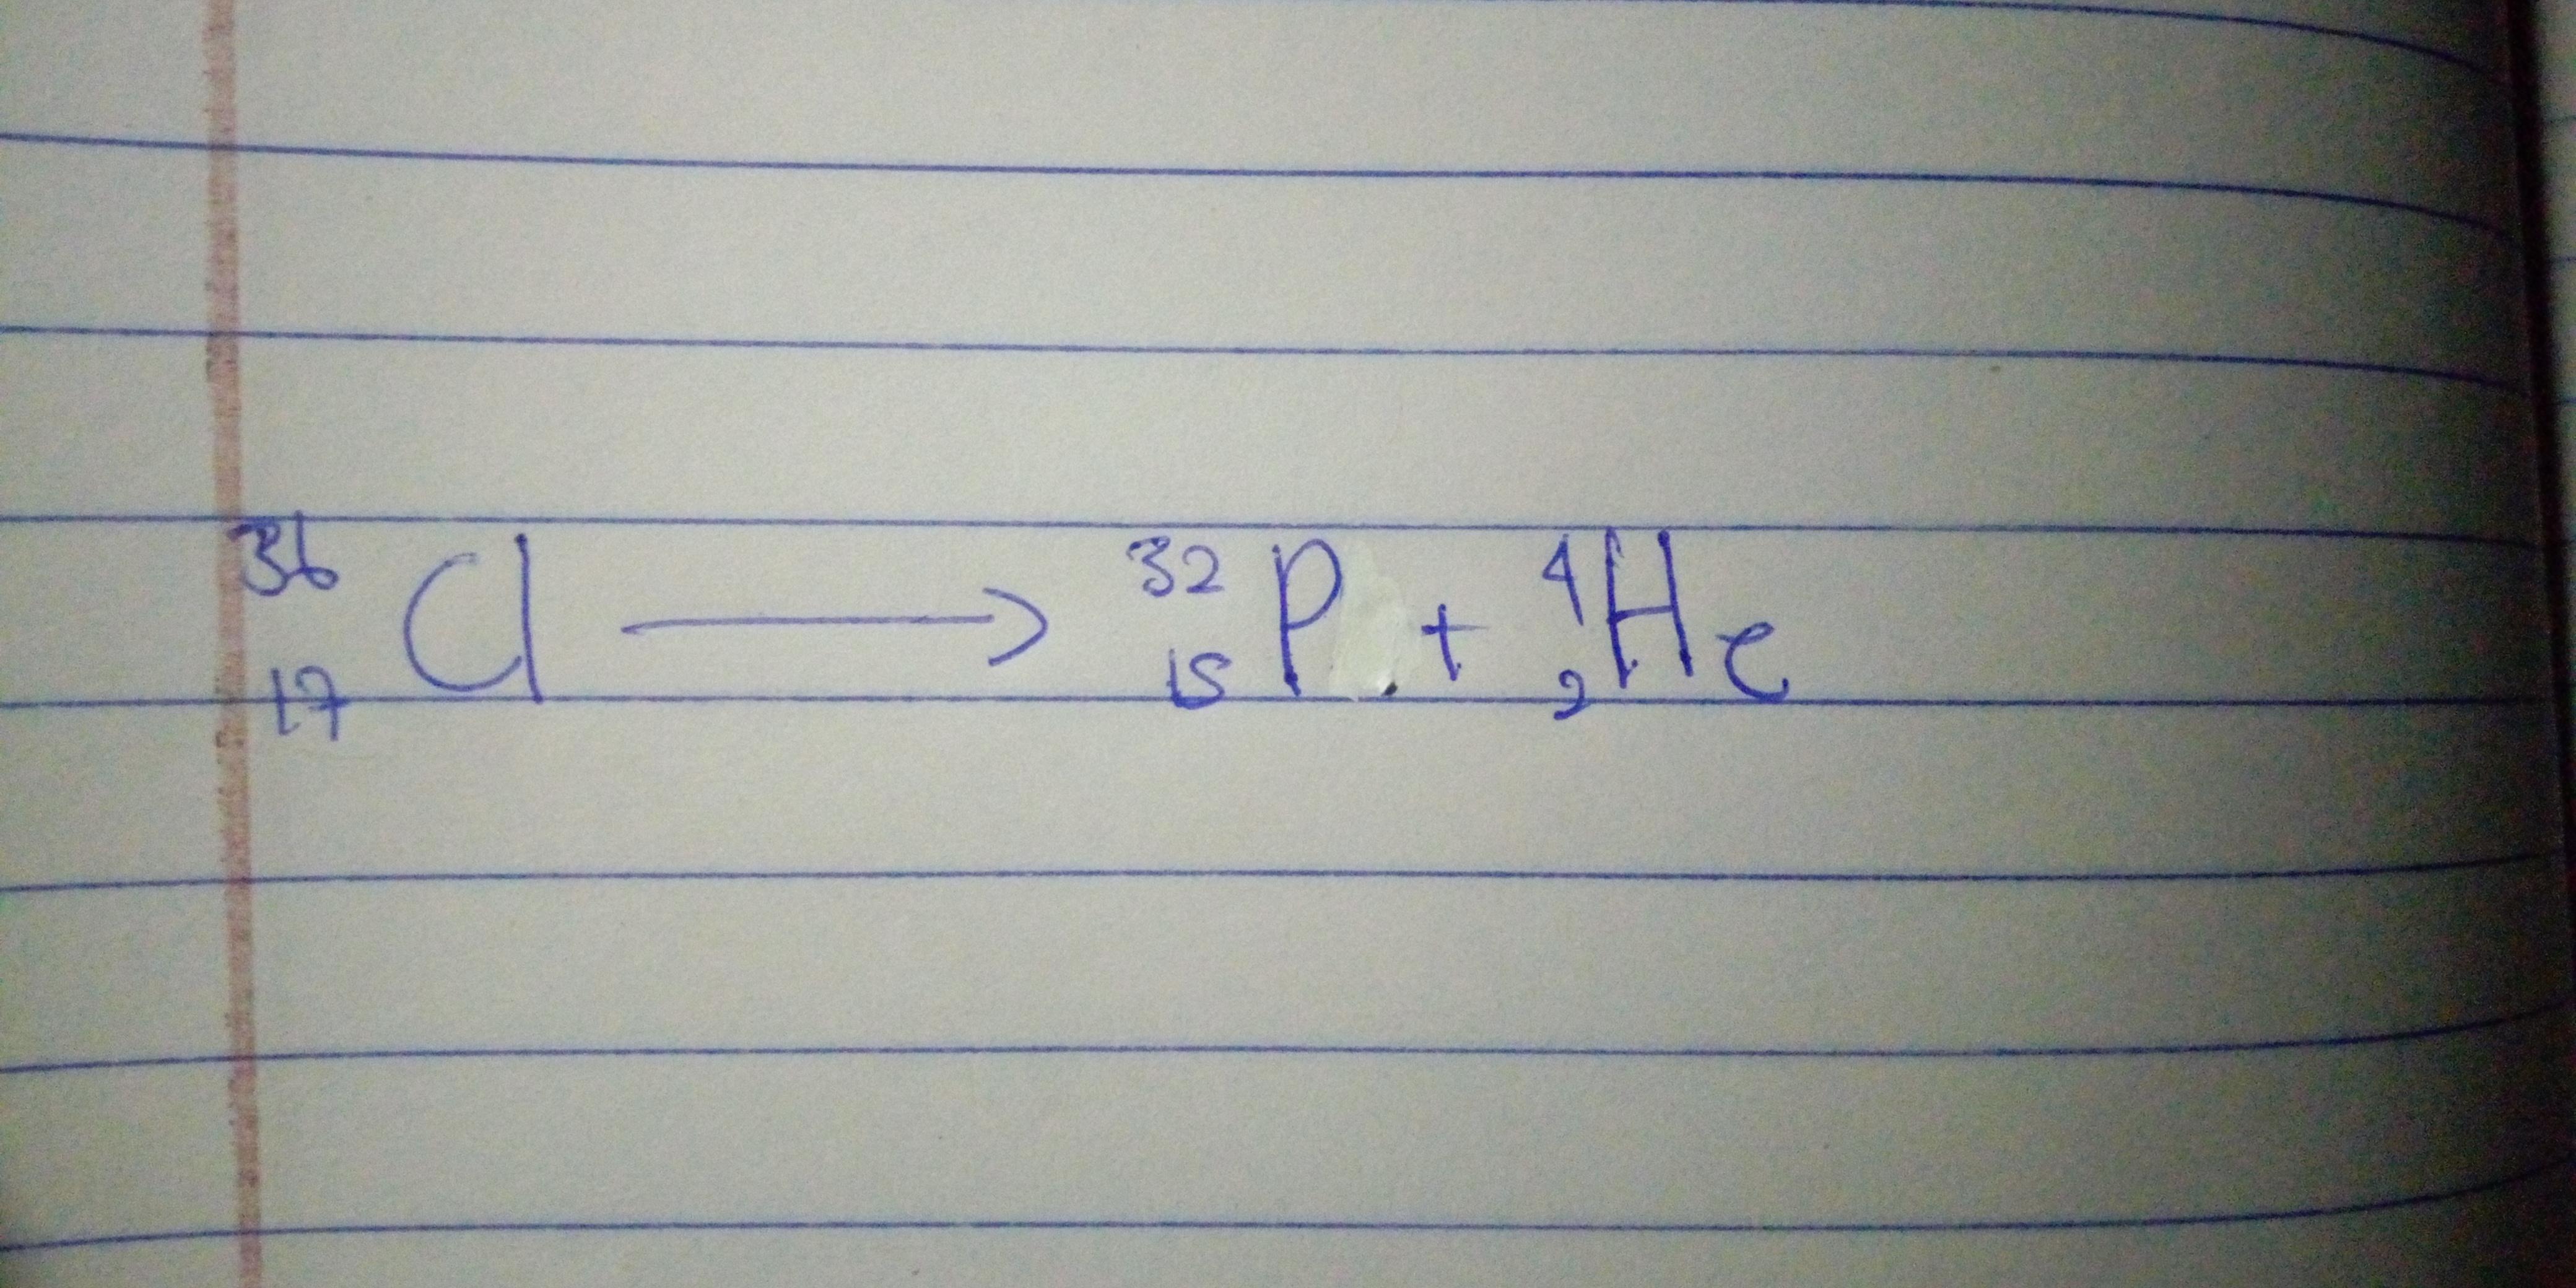 ³⁶₁₇Cl ⟶ ³²₁₅P + ⁴₂He